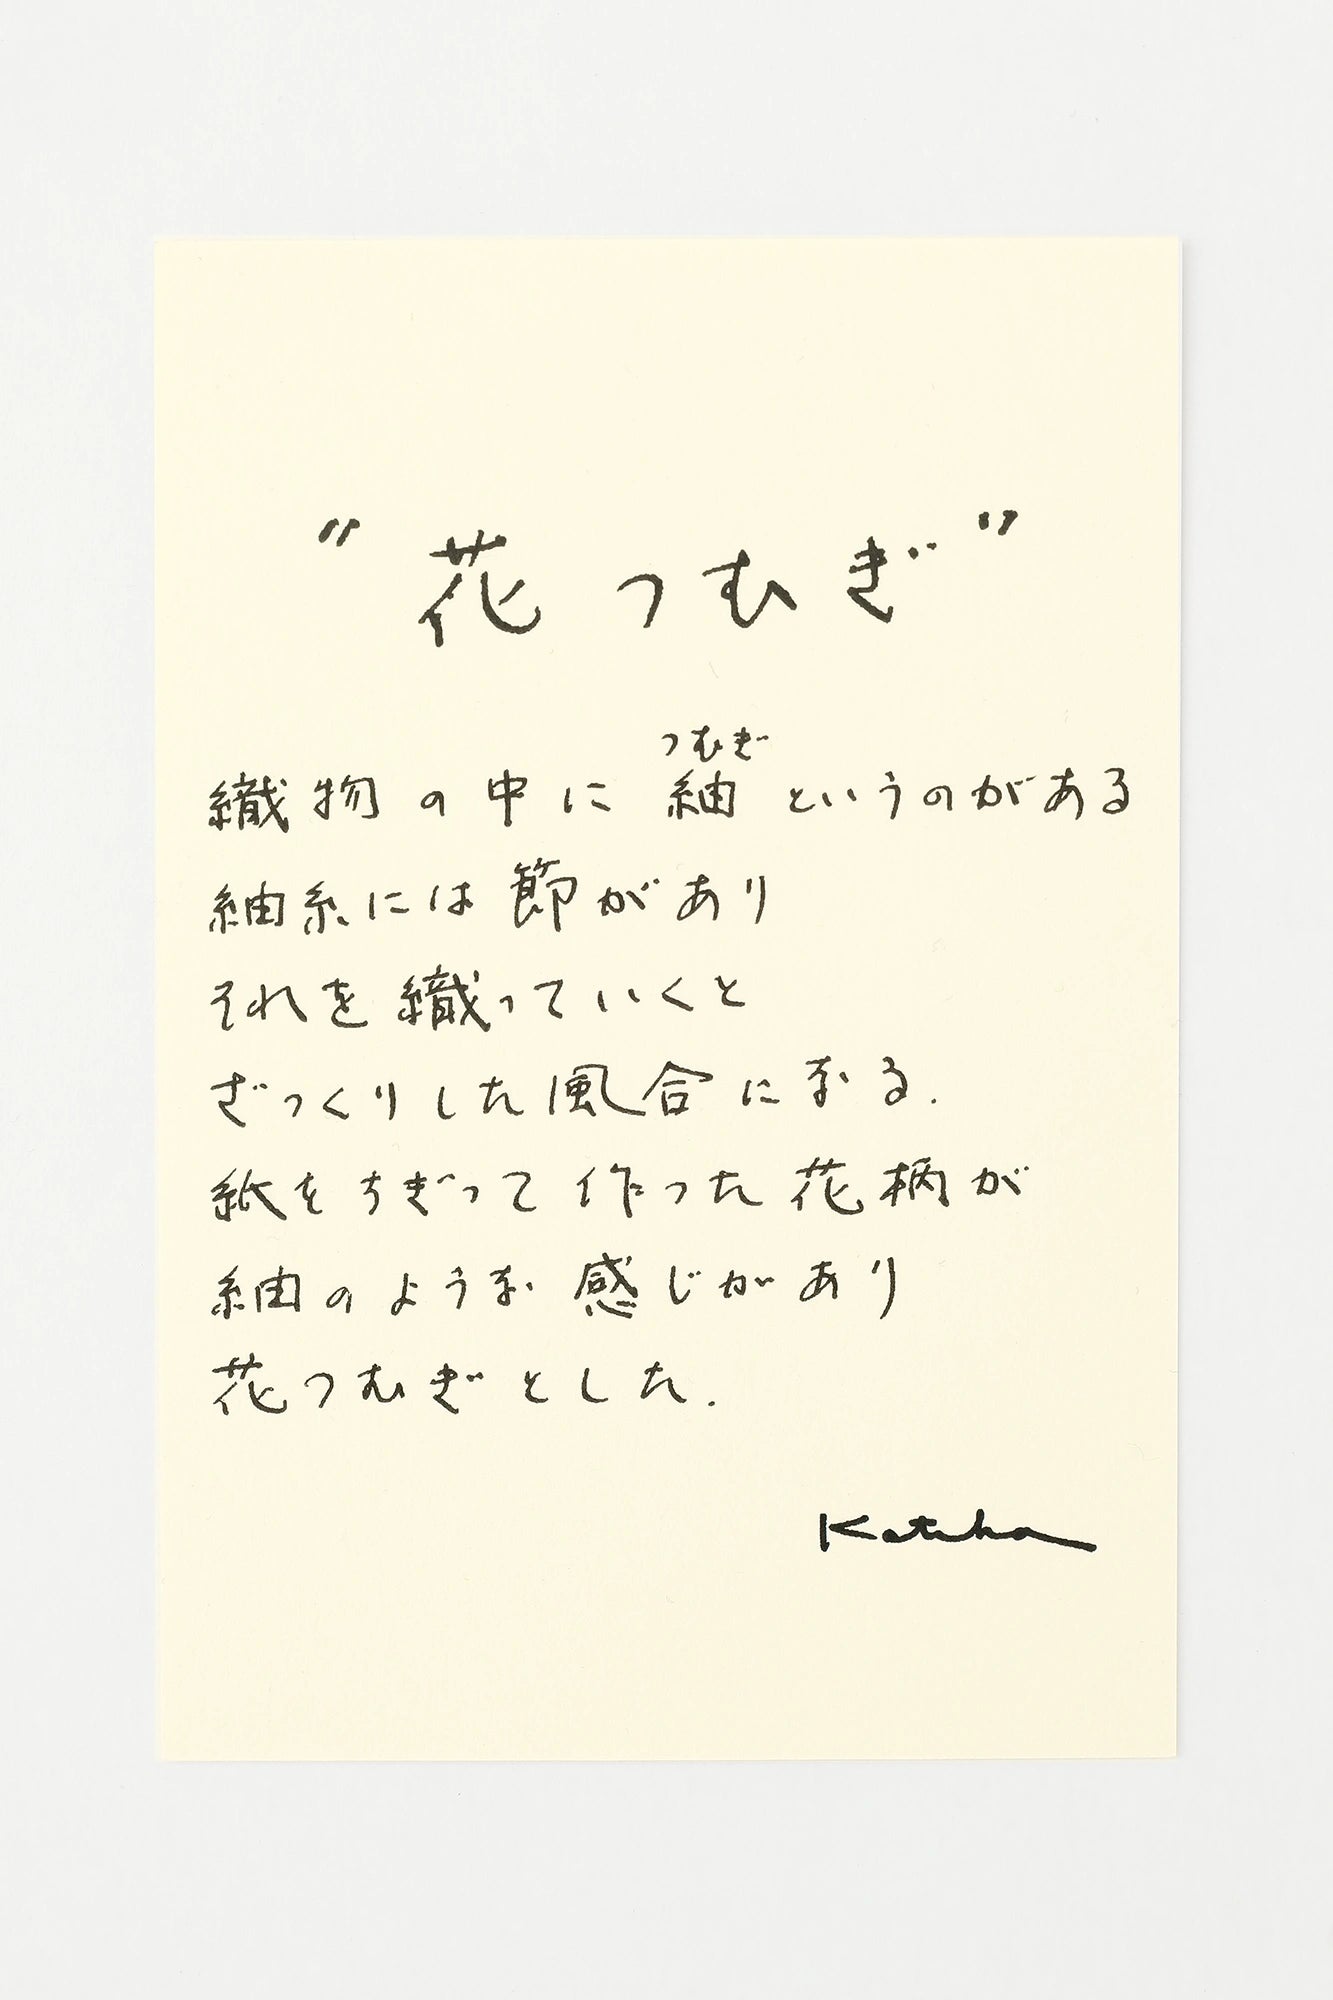 "花つむぎ"
つむぎ
織物の中に紬というのがある
紬糸には節があり
それを織っていくと
ざっくりした風合になる.
紙をちぎって作った花柄が
紬のような感じがあり
花つむぎとした.